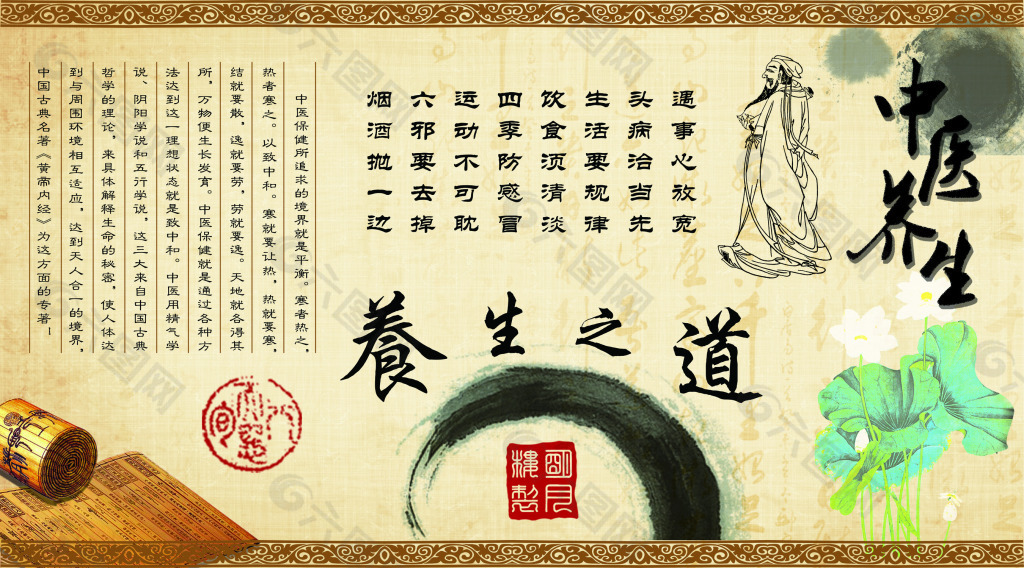 中医养生
遇事心放宽
头病治当先
生活要规律
饮食须清淡
四季防感冒
运动不可耽
六邪要去掉
烟酒抛一边
养生之道
中医保健所追求的境界就是平衡。寒者热之，
热者寒之。以致中和。寒就要让热，热就要寒，
结就要散，逸就要劳，劳就要逸。天地就各得其
所，万物便生长发育。中医保健就是通过各种方
法达到这一理想状态就是致中和。中医用精气学
说、阴阳学说和五行学说，这三大来自中国古典
哲学的理论，来具体解释生命的秘密，使人体达
到与周围环境相互适应，达到天人合一的境界，
中国古典名著《黄帝内经》为这方面的专著－
明月
楼製
六图网